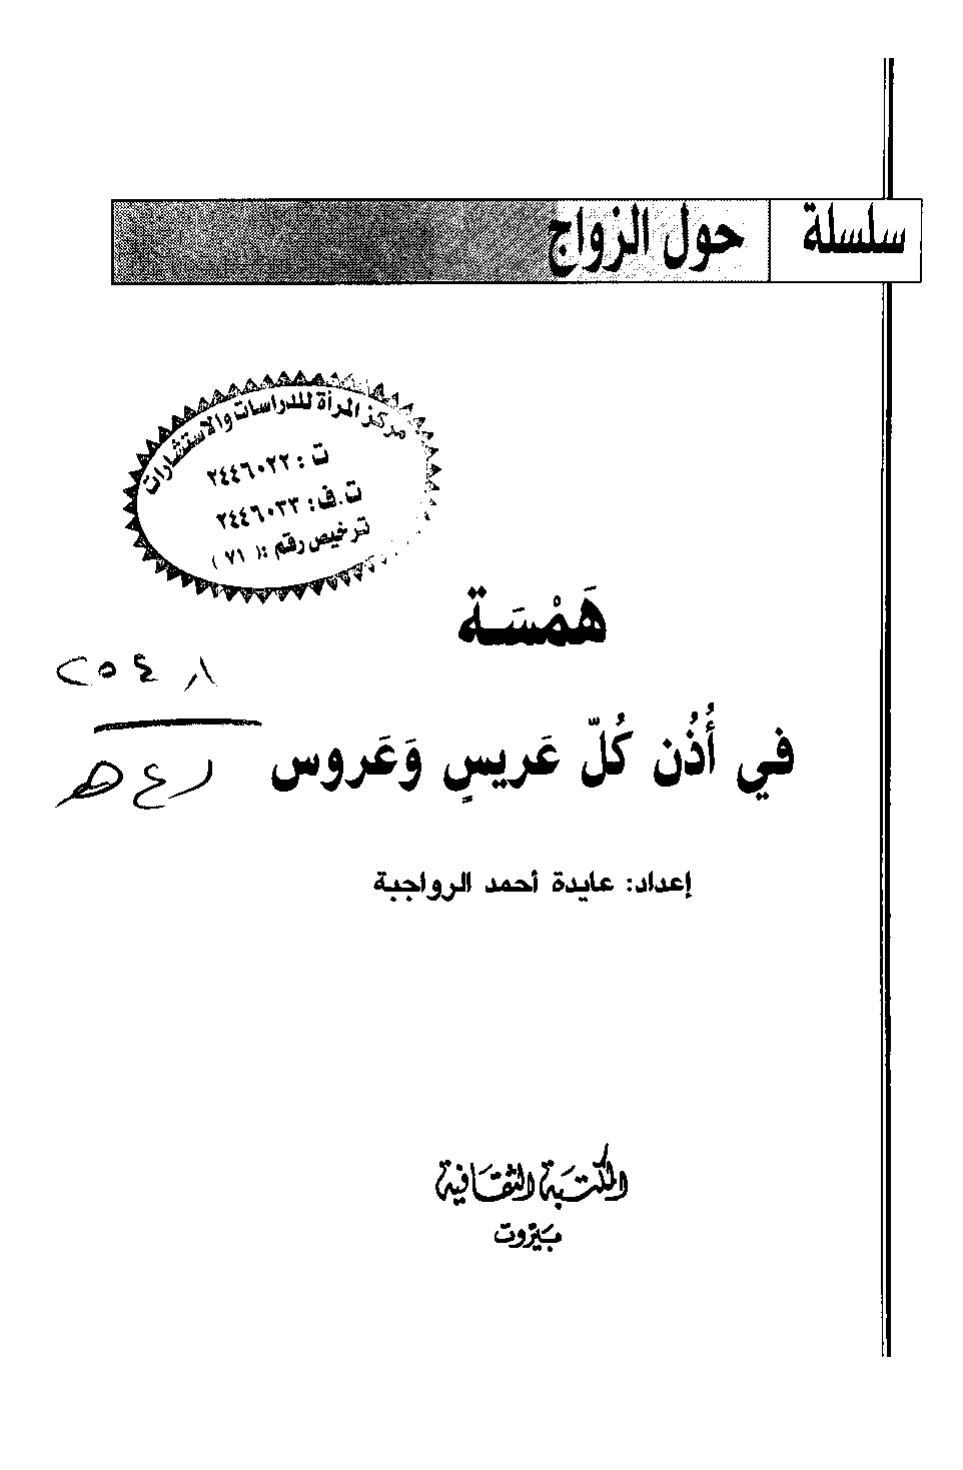 سلسلة حول الزواج
مركز المرأة للدراسات والاستشارات
ت : ٢٤٤٦٠٢٢
ت.ف: ٢٤٤٦٠٣٣
ترخيص رقم :( ٧١ )
هَمْسَـة
في أُذُن كُلّ عَريسٍ وَعَروس
إعداد: عايدة أحمد الرواجبة
المكتبة الثقافية
بيروت